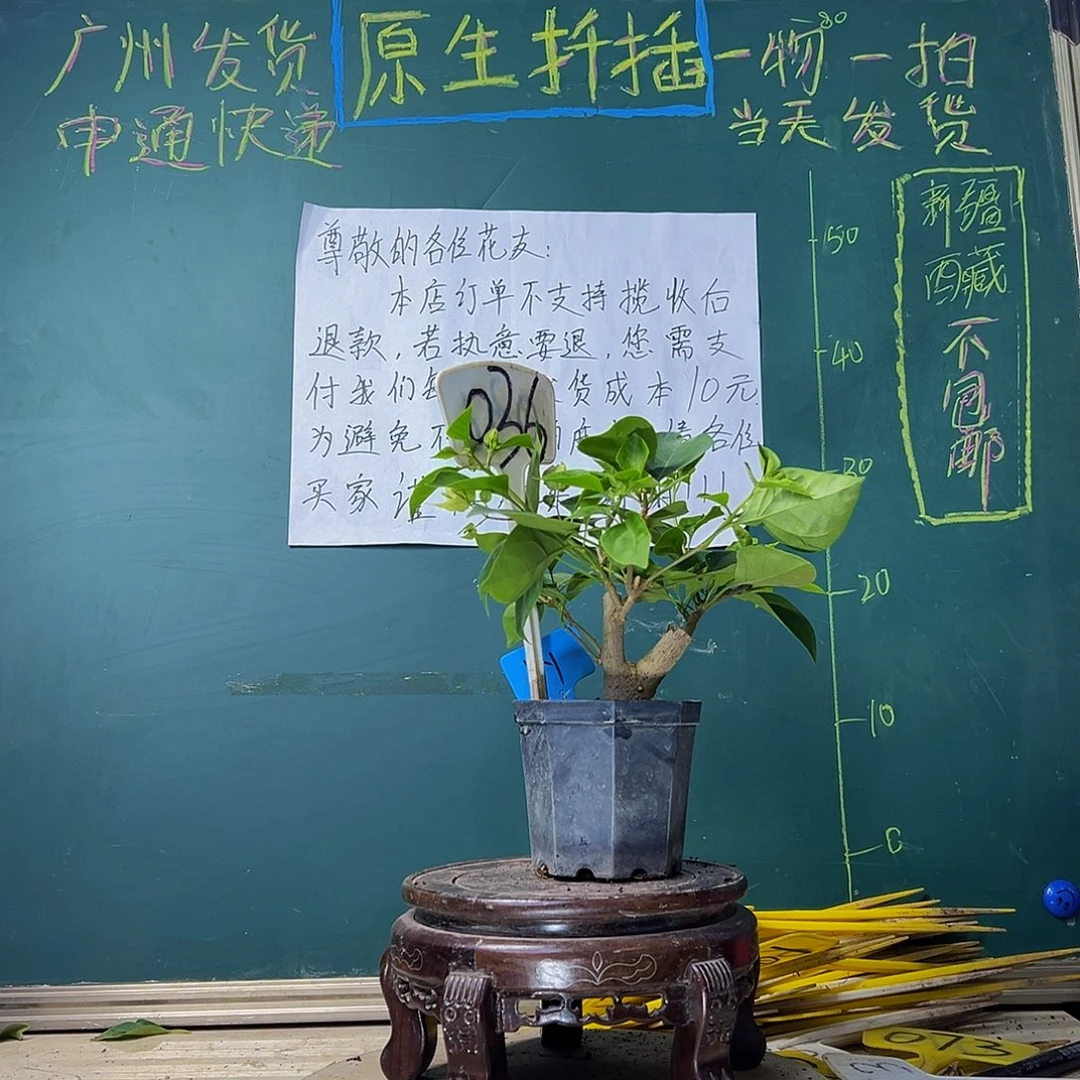 广州发货
申通快递
原生扦插
一物一拍
当天发货
尊敬的各位花友:
本店订单不支持揽收后
退款,若执意要退,您需支
付我们 货成本10元
为避免不 各位
买家
036
50
40
30
20
10
0
新疆
西藏
不包邮
073